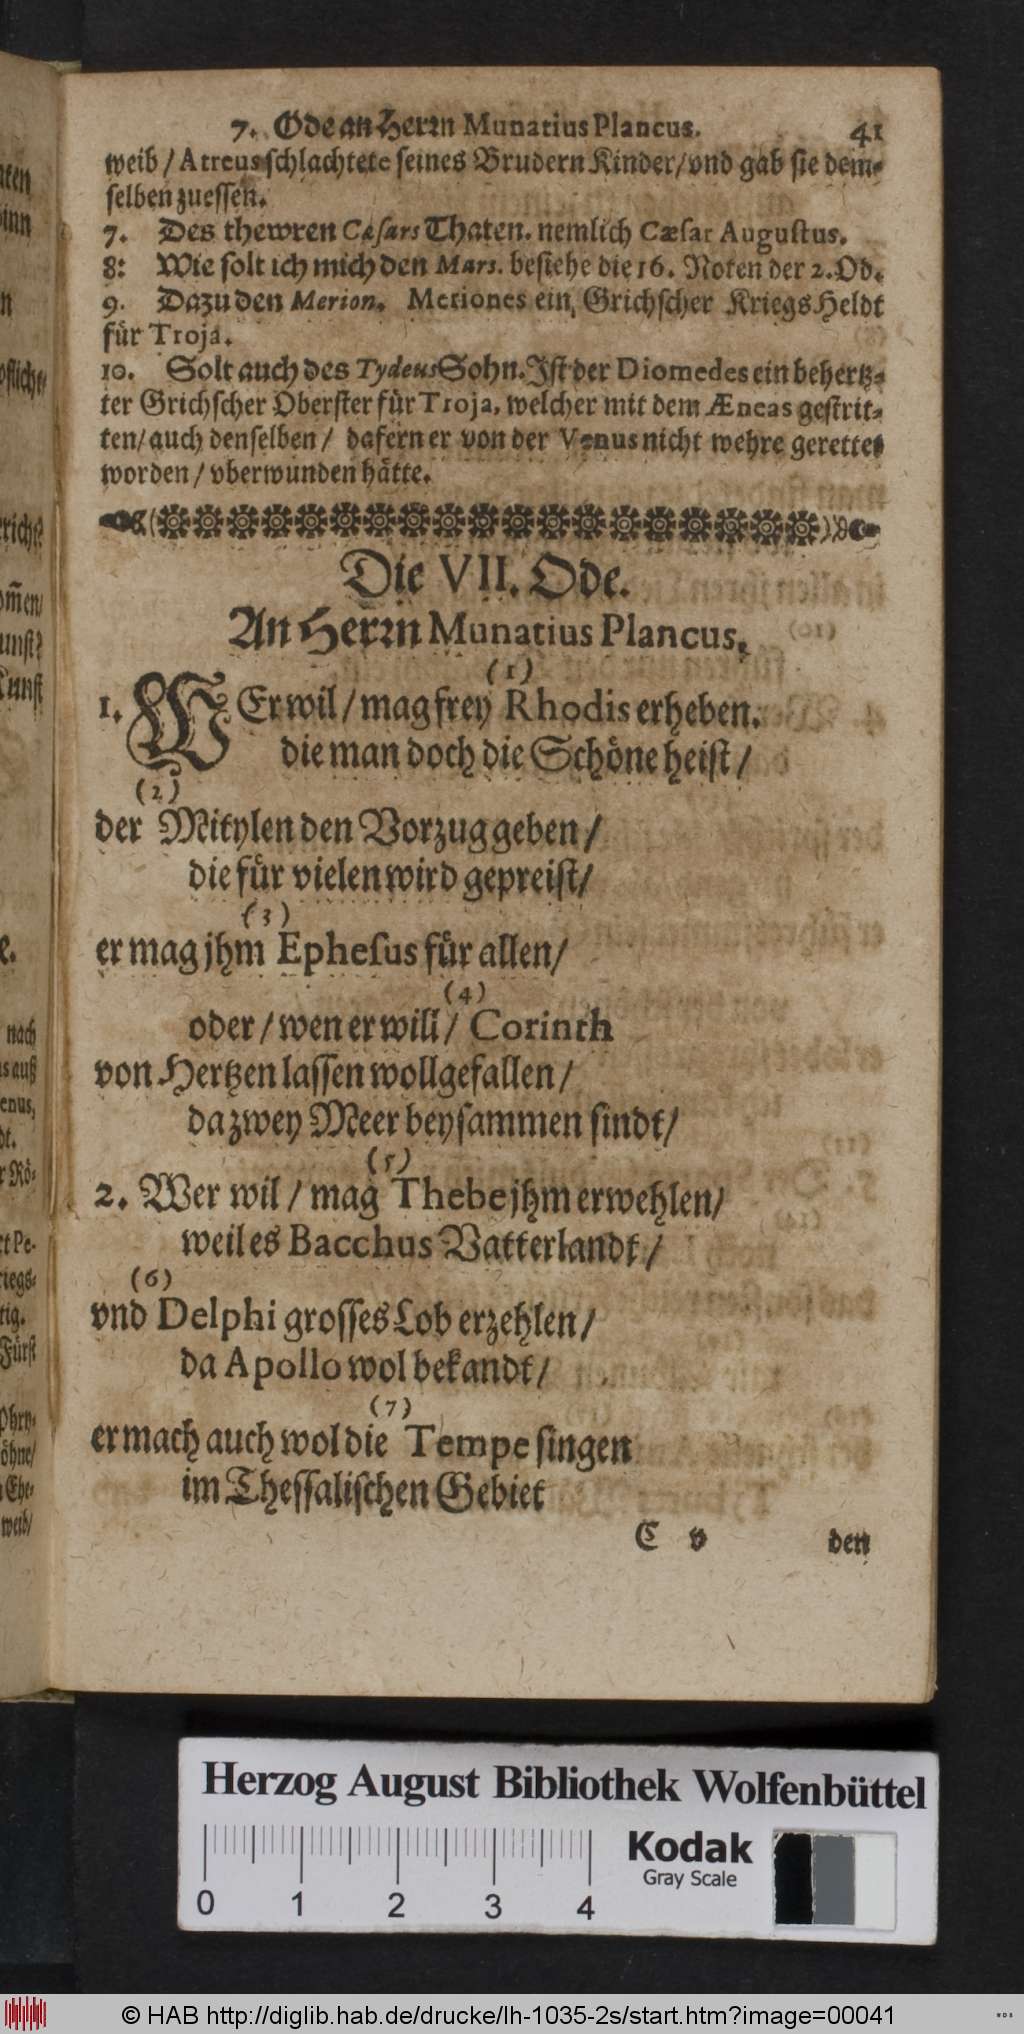 7. Ode an Herrn Munatius Plancus. 41
weib / Atreus schlachtete seines Brudern Kinder / vnd gab sie dem-
selben zuessen.
7. Des thewren Cæsars Thaten. nemlich Cæsar Augustus.
8: Wie solt ich mich den Mars. besiehe die 16. Noten der 2. Od.
9. Dazu den Merion. Meriones ein Grichscher Kriegs Heldt
für Troja.
10. Solt auch des Tydeus Sohn. Ist der Diomedes ein behertz-
ter Grichscher Oberster für Troja, welcher mit dem Æneas gestrit-
ten / auch denselben / dafern er von der Venus nicht wehre gerettet
worden / vberwunden hätte.
Die VII. Ode.
An Herrn Munatius Plancus.
(1)
1. WEr wil / mag frey Rhodis erheben.
die man doch die Schöne heist /
(2)
der Mitylen den Vorzug geben /
die für vielen wird gepreist /
(3)
er mag jhm Ephesus für allen /
(4)
oder / wen er will / Corinth
von Hertzen lassen wollgefallen /
da zwey Meer beysammen sindt /
(5)
2. Wer wil / mag Thebe jhm erwehlen /
weil es Bacchus Vatterlandt /
(6)
vnd Delphi grosses Lob erzehlen /
da Apollo wol bekandt /
(7)
er mach auch wol die Tempe singen
im Thessalischen Gebiet
C v den
Herzog August Bibliothek Wolfenbüttel
Kodak
Gray Scale
0 1 2 3 4
© HAB http://diglib.hab.de/drucke/lh-1035-2s/start.htm?image=00041